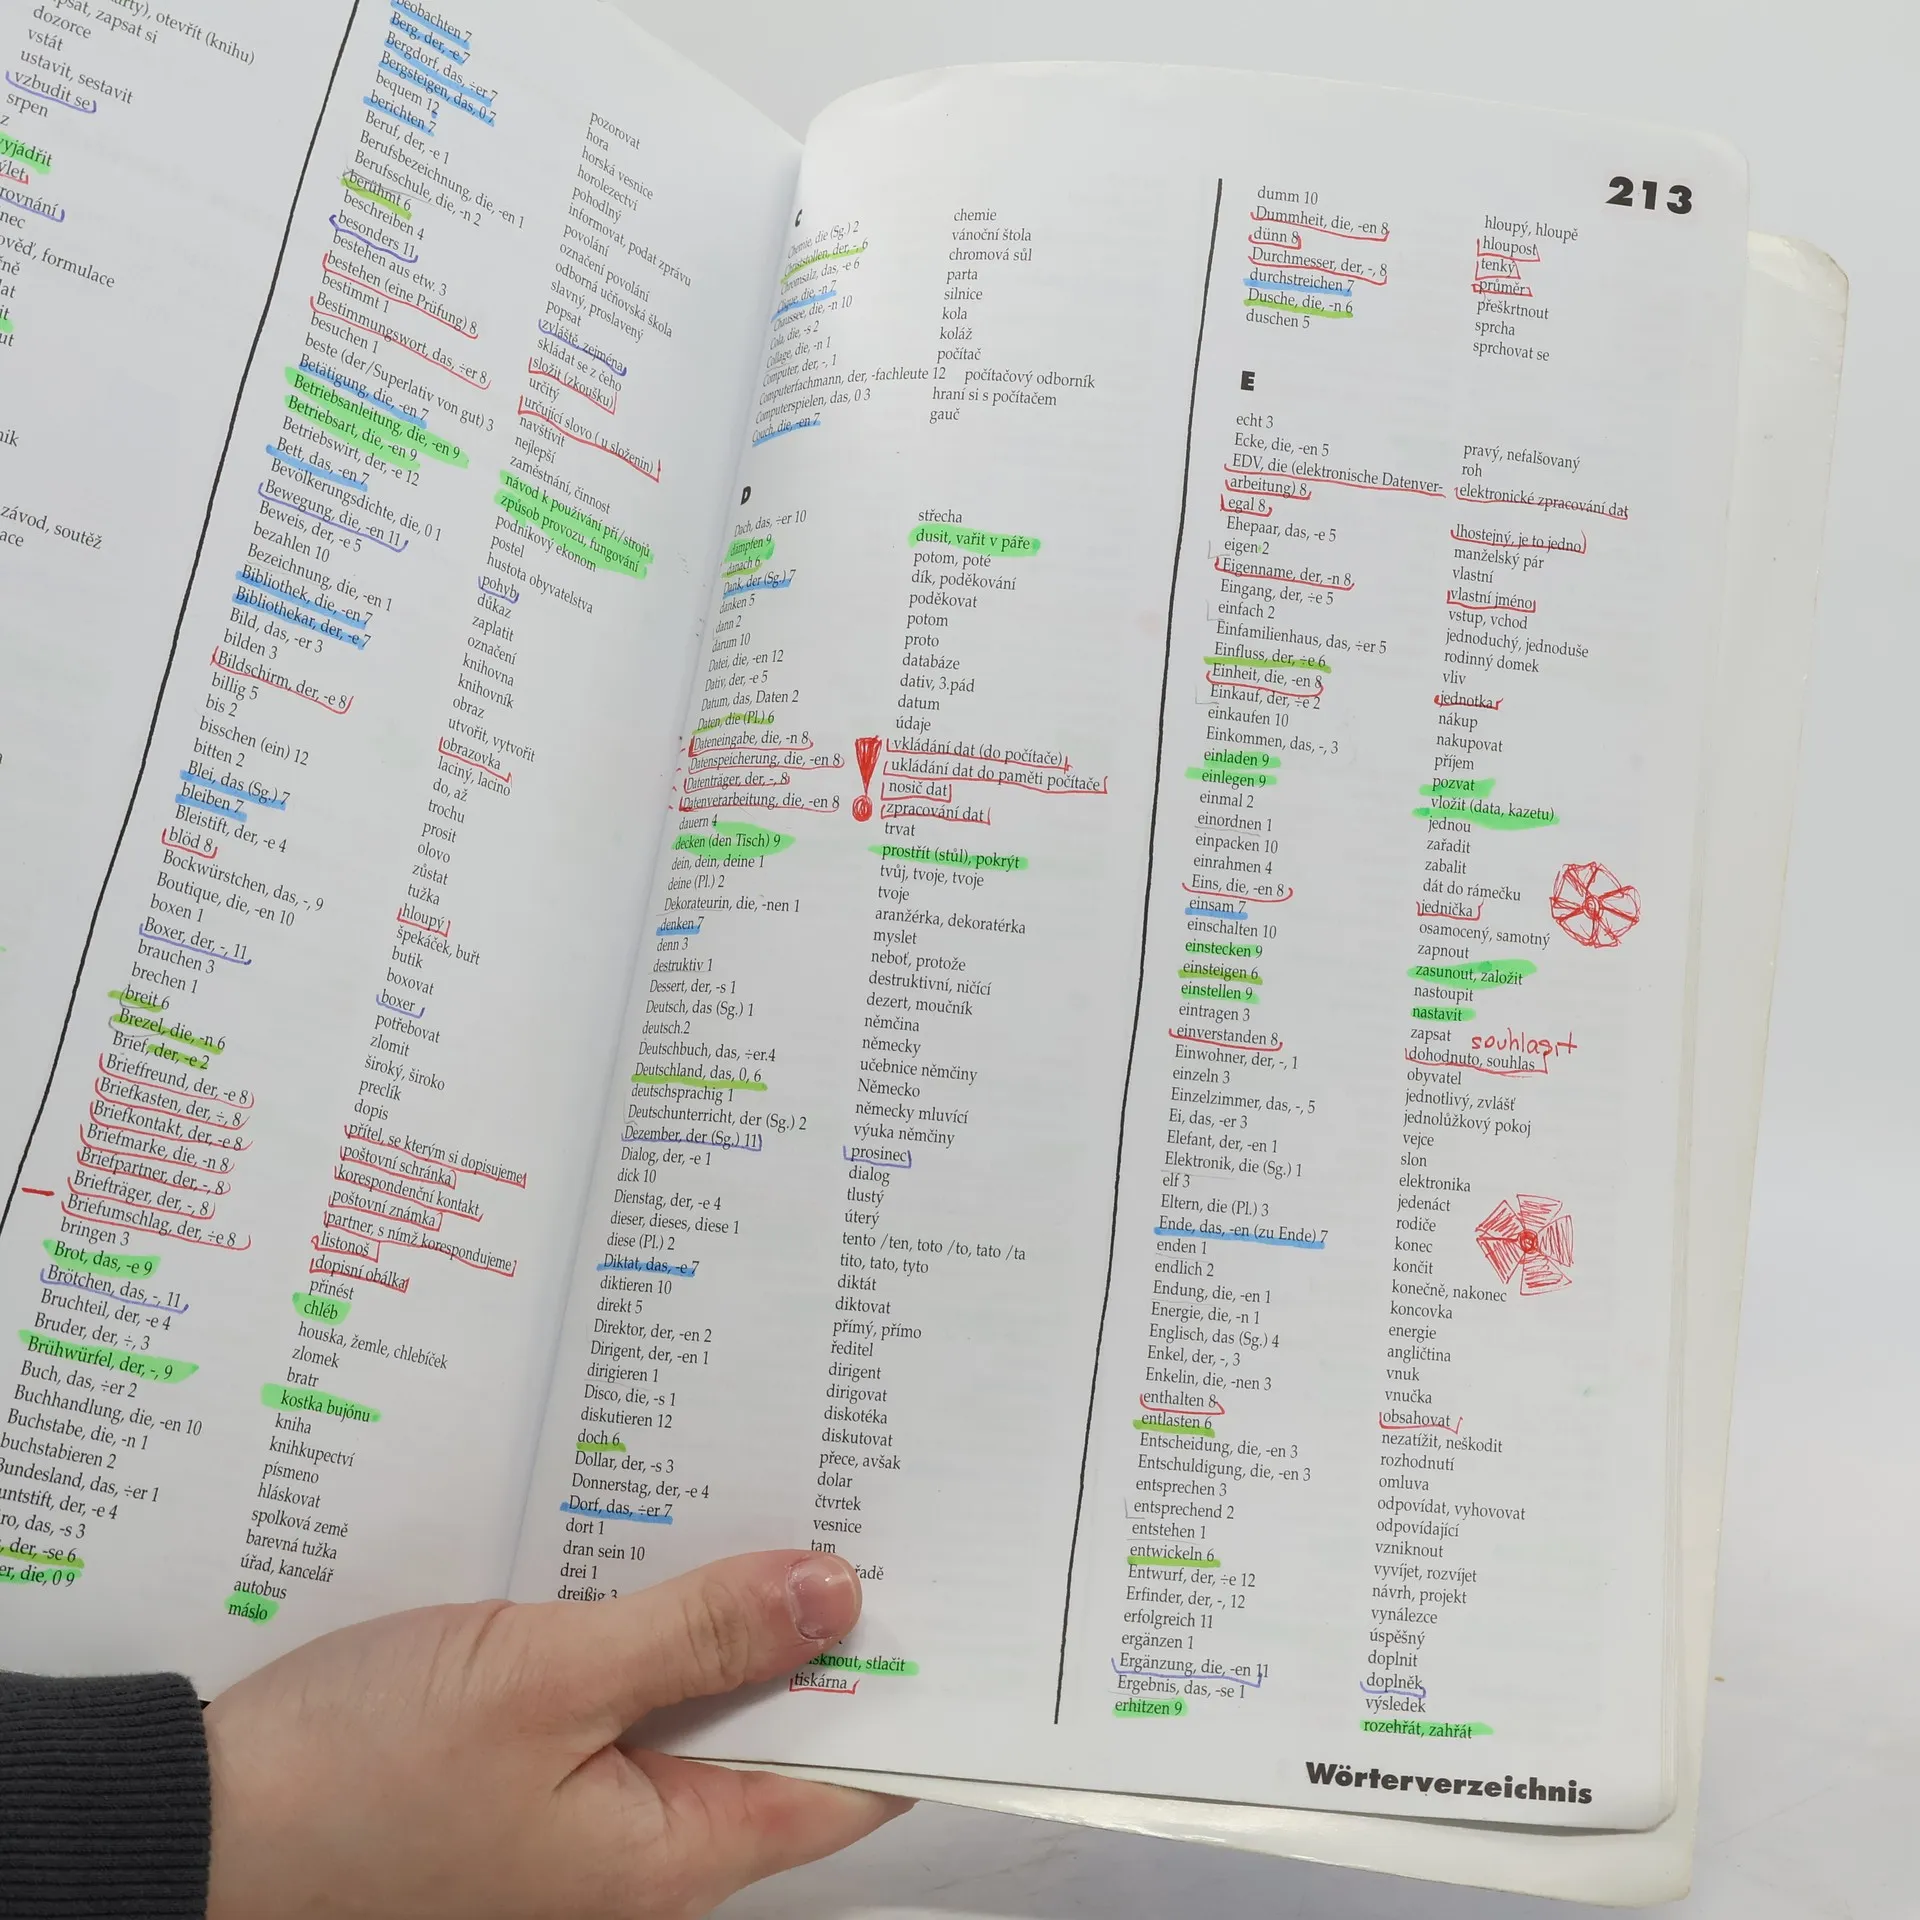 arty), otevřít (knihu)
psát, zapsat si
dozorce
vstát
ustavit, sestavit
vzbudit se
srpen
z
vyjádřit
ýlet
rovnání
nec
ověď, formulace
čně
lat
it
ut
nik
závod, soutěž
ace
beobachten 7
Berg, der, -e 7
Bergdorf, das, ÷er 7
Bergsteigen, das, 0 7
bequem 12
berichten 7
Beruf, der, -e 1
Berufsbezeichnung, die, -en 1
Berufsschule, die, -n 2
berühmt 6
beschreiben 4
besonders 11
bestehen aus etw. 3
bestehen (eine Prüfung) 8
bestimmt 1
Bestimmungswort, das, ÷er 8
besuchen 1
beste (der/Superlativ von gut) 3
Betätigung, die, -en 7
Betriebsanleitung, die, -en 9
Betriebsart, die, -en 9
Betriebswirt, der, -e 12
Bett, das, -en 7
Bevölkerungsdichte, die, 0 1
Bewegung, die, -en 11
Beweis, der, -e 5
bezahlen 10
Bezeichnung, die, -en 1
Bibliothek, die, -en 7
Bibliothekar, der, -e 7
Bild, das, -er 3
bilden 3
Bildschirm, der, -e 8
billig 5
bis 2
bisschen (ein) 12
bitten 2
Blei, das (Sg.) 7
bleiben 7
Bleistift, der, -e 4
blöd 8
Bockwürstchen, das, -, 9
Boutique, die, -en 10
boxen 1
Boxer, der, -, 11
brauchen 3
brechen 1
breit 6
Brezel, die, -n 6
Brief, der, -e 2
Brieffreund, der, -e 8
Briefkasten, der, ÷, 8
Briefkontakt, der, -e 8
Briefmarke, die, -n 8
Briefpartner, der, -, 8
Briefträger, der, -, 8
Briefumschlag, der, ÷e 8
bringen 3
Brot, das, -e 9
Brötchen, das, -, 11
Bruchteil, der, -e 4
Bruder, der, ÷, 3
Brühwürfel, der, -, 9
Buch, das, ÷er 2
Buchhandlung, die, -en 10
Buchstabe, die, -n 1
buchstabieren 2
Bundesland, das, ÷er 1
untstift, der, -e 4
ro, das, -s 3
, der, -se 6
er, die, 0 9
pozorovat
hora
horská vesnice
horolezectví
pohodlný
informovat, podat zprávu
povolání
označení povolání
odborná učňovská škola
slavný, proslavený
popsat
zvláště, zejména
skládat se z čeho
složit (zkoušku)
určitý
určující slovo ( u složenin)
navštívit
nejlepší
zaměstnání, činnost
návod k používání pří/strojů
způsob provozu, fungování
podnikový ekonom
postel
hustota obyvatelstva
pohyb
důkaz
zaplatit
označení
knihovna
knihovník
obraz
utvořit, vytvořit
obrazovka
laciný, lacino
do, až
trochu
prosit
olovo
zůstat
tužka
hloupý
špekáček, buřt
butik
boxovat
boxer
potřebovat
zlomit
široký, široko
preclík
dopis
přítel, se kterým si dopisujeme
poštovní schránka
korespondenční kontakt
poštovní známka
partner, s nímž korespondujeme
listonoš
dopisní obálka
přinést
chléb
houska, žemle, chlebíček
zlomek
bratr
kostka bujónu
kniha
knihkupectví
písmeno
hláskovat
spolková země
barevná tužka
úřad, kancelář
autobus
máslo
213
C
Chemie, die (Sg.) 2
Christstollen, der, -, 6
Chromsalz, das, -e 6
Clique, die, -n 7
Chaussee, die, -n 10
Cola, die, -s 2
Collage, die, -n 1
Computer, der, -, 1
Computerfachmann, der, -fachleute 12 počítačový odborník
Computerspielen, das, 0 3
Couch, die, -en 7
chemie
vánoční štola
chromová sůl
parta
silnice
kola
koláž
počítač
hraní si s počítačem
gauč
D
Dach, das, ÷er 10
dämpfen 9
danach 6
Dank, der (Sg.) 7
danken 5
dann 2
darum 10
Datei, die, -en 12
Dativ, der, -e 5
Datum, das, Daten 2
Daten, die (Pl.) 6
Dateneingabe, die, -n 8
Datenspeicherung, die, -en 8
Datenträger, der, -, 8
Datenverarbeitung, die, -en 8
dauern 4
decken (den Tisch) 9
dein, dein, deine 1
deine (Pl.) 2
Dekorateurin, die, -nen 1
denken 7
denn 3
destruktiv 1
Dessert, der, -s 1
Deutsch, das (Sg.) 1
deutsch.2
Deutschbuch, das, ÷er.4
Deutschland, das, 0, 6
deutschsprachig 1
Deutschunterricht, der (Sg.) 2
Dezember, der (Sg.) 11
Dialog, der, -e 1
dick 10
Dienstag, der, -e 4
dieser, dieses, diese 1
diese (Pl.) 2
Diktat, das, -e 7
diktieren 10
direkt 5
Direktor, der, -en 2
Dirigent, der, -en 1
dirigieren 1
Disco, die, -s 1
diskutieren 12
doch 6
Dollar, der, -s 3
Donnerstag, der, -e 4
Dorf, das, ÷er 7
dort 1
dran sein 10
drei 1
dreißig 3
střecha
dusit, vařit v páře
potom, poté
dík, poděkování
poděkovat
potom
proto
databáze
dativ, 3.pád
datum
údaje
vkládání dat (do počítače)
ukládání dat do paměti počítače
nosič dat
zpracování dat
trvat
prostřít (stůl), pokrýt
tvůj, tvoje, tvoje
tvoje
aranžérka, dekoratérka
myslet
neboť, protože
destruktivní, ničící
dezert, moučník
němčina
německy
učebnice němčiny
Německo
německy mluvící
výuka němčiny
prosinec
dialog
tlustý
úterý
tento /ten, toto /to, tato /ta
tito, tato, tyto
diktát
diktovat
přímý, přímo
ředitel
dirigent
dirigovat
diskotéka
diskutovat
přece, avšak
dolar
čtvrtek
vesnice
tam
řadě
isknout, stlačit
tiskárna
dumm 10
Dummheit, die, -en 8
dünn 8
Durchmesser, der, -, 8
durchstreichen 7
Dusche, die, -n 6
duschen 5
hloupý, hloupě
hloupost
tenký
průměr
přeškrtnout
sprcha
sprchovat se
E
echt 3
Ecke, die, -en 5
EDV, die (elektronische Datenver-
arbeitung) 8
egal 8
Ehepaar, das, -e 5
eigen 2
Eigenname, der, -n 8
Eingang, der, ÷e 5
einfach 2
Einfamilienhaus, das, ÷er 5
Einfluss, der, ÷e 6
Einheit, die, -en 8
Einkauf, der, ÷e 2
einkaufen 10
Einkommen, das, -, 3
einladen 9
einlegen 9
einmal 2
einordnen 1
einpacken 10
einrahmen 4
Eins, die, -en 8
einsam 7
einschalten 10
einstecken 9
einsteigen 6
einstellen 9
eintragen 3
einverstanden 8
Einwohner, der, -, 1
einzeln 3
Einzelzimmer, das, -, 5
Ei, das, -er 3
Elefant, der, -en 1
Elektronik, die (Sg.) 1
elf 3
Eltern, die (Pl.) 3
Ende, das, -en (zu Ende) 7
enden 1
endlich 2
Endung, die, -en 1
Energie, die, -n 1
Englisch, das (Sg.) 4
Enkel, der, -, 3
Enkelin, die, -nen 3
enthalten 8
entlasten 6
Entscheidung, die, -en 3
Entschuldigung, die, -en 3
entsprechen 3
entsprechend 2
entstehen 1
entwickeln 6
Entwurf, der, ÷e 12
Erfinder, der, -, 12
erfolgreich 11
ergänzen 1
Ergänzung, die, -en 11
Ergebnis, das, -se 1
erhitzen 9
pravý, nefalšovaný
roh
elektronické zpracování dat
lhostejný, je to jedno
manželský pár
vlastní
vlastní jméno
vstup, vchod
jednoduchý, jednoduše
rodinný domek
vliv
jednotka
nákup
nakupovat
příjem
pozvat
vložit (data, kazetu)
jednou
zařadit
zabalit
dát do rámečku
jednička
osamocený, samotný
zapnout
zasunout, založit
nastoupit
nastavit
zapsat
souhlasit
dohodnuto, souhlas
obyvatel
jednotlivý, zvlášť
jednolůžkový pokoj
vejce
slon
elektronika
jedenáct
rodiče
konec
končit
konečně, nakonec
koncovka
energie
angličtina
vnuk
vnučka
obsahovat
nezatížit, neškodit
rozhodnutí
omluva
odpovídat, vyhovovat
odpovídající
vzniknout
vyvíjet, rozvíjet
návrh, projekt
vynálezce
úspěšný
doplnit
doplněk
výsledek
rozehřát, zahřát
Wörterverzeichnis